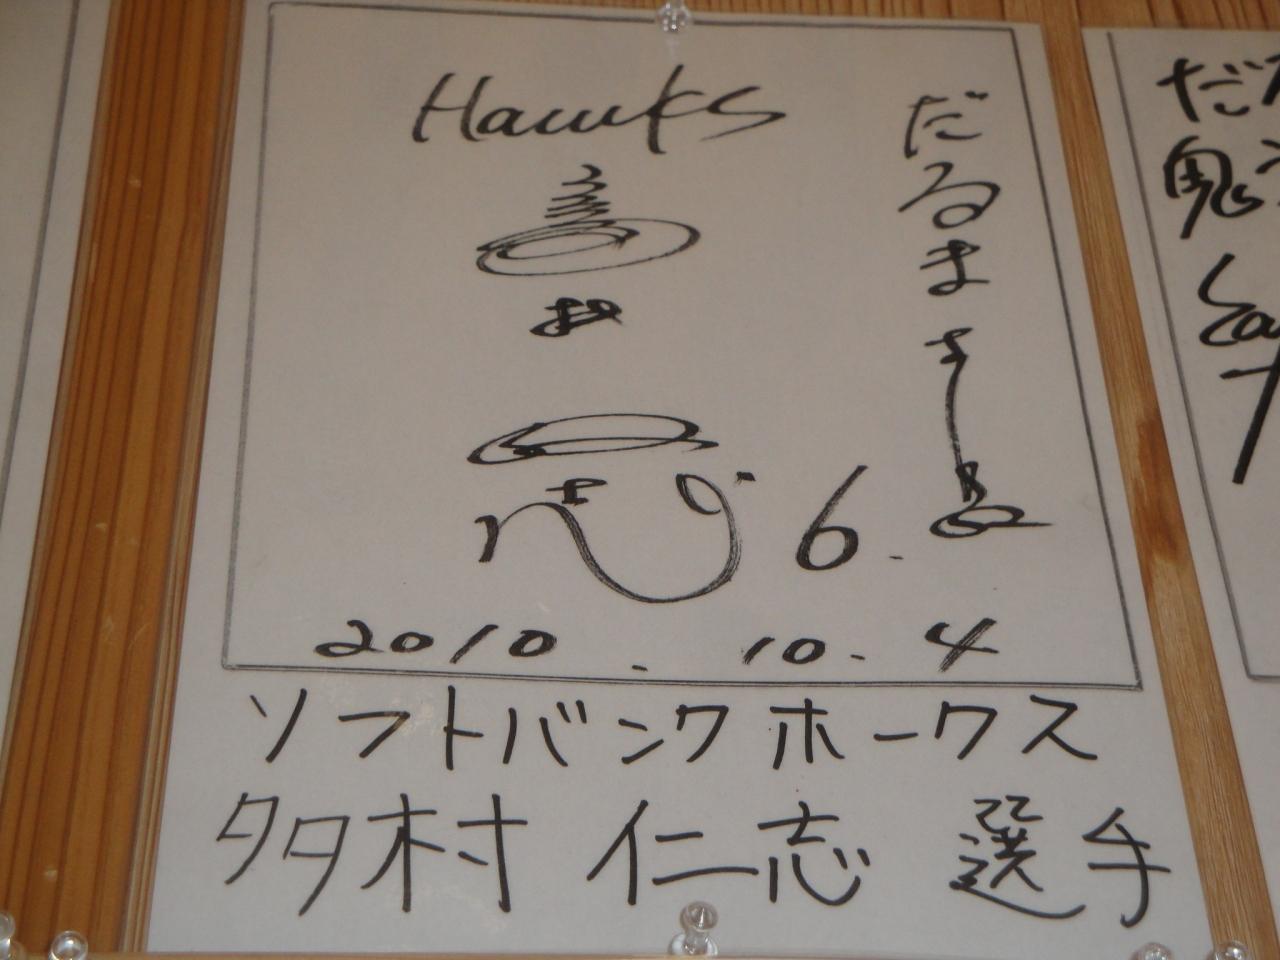 Hawks
だるまさん江
6.
2010. 10. 4
ソフトバンクホークス
多村 仁志 選手
だ
鬼